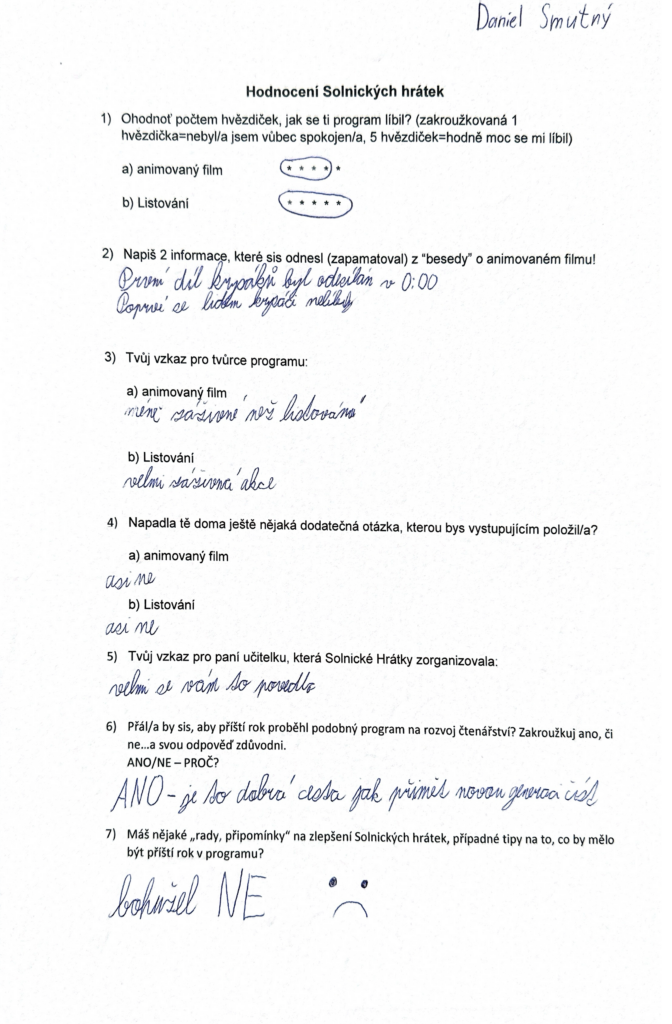 Daniel Smutný
Hodnocení Solnických hrátek
1) Ohodnoť počtem hvězdiček, jak se ti program líbil? (zakroužkovaná 1
hvězdička=nebyl/a jsem vůbec spokojen/a, 5 hvězdiček=hodně moc se mi líbil)
a) animovaný film * * * * *
b) Listování * * * * *
2) Napiš 2 informace, které sis odnesl (zapamatoval) z "besedy" o animovaném filmu!
První díl krysáků byl odesílán v 0:00
Poprvé se lidem krysáci nelíbily
3) Tvůj vzkaz pro tvůrce programu:
a) animovaný film
méně záživné než listování
b) Listování
velmi záživná akce
4) Napadla tě doma ještě nějaká dodatečná otázka, kterou bys vystupujícím položil/a?
a) animovaný film
asi ne
b) Listování
asi ne
5) Tvůj vzkaz pro paní učitelku, která Solnické Hrátky zorganizovala:
velmi se vám to povedlo
6) Přál/a by sis, aby příští rok proběhl podobný program na rozvoj čtenářství? Zakroužkuj ano, či
ne...a svou odpověď zdůvodni.
ANO/NE – PROČ?
ANO - je to dobrá cesta jak přimět novou generaci číst
7) Máš nějaké „rady, připomínky" na zlepšení Solnických hrátek, případné tipy na to, co by mělo
být příští rok v programu?
bohužel NE